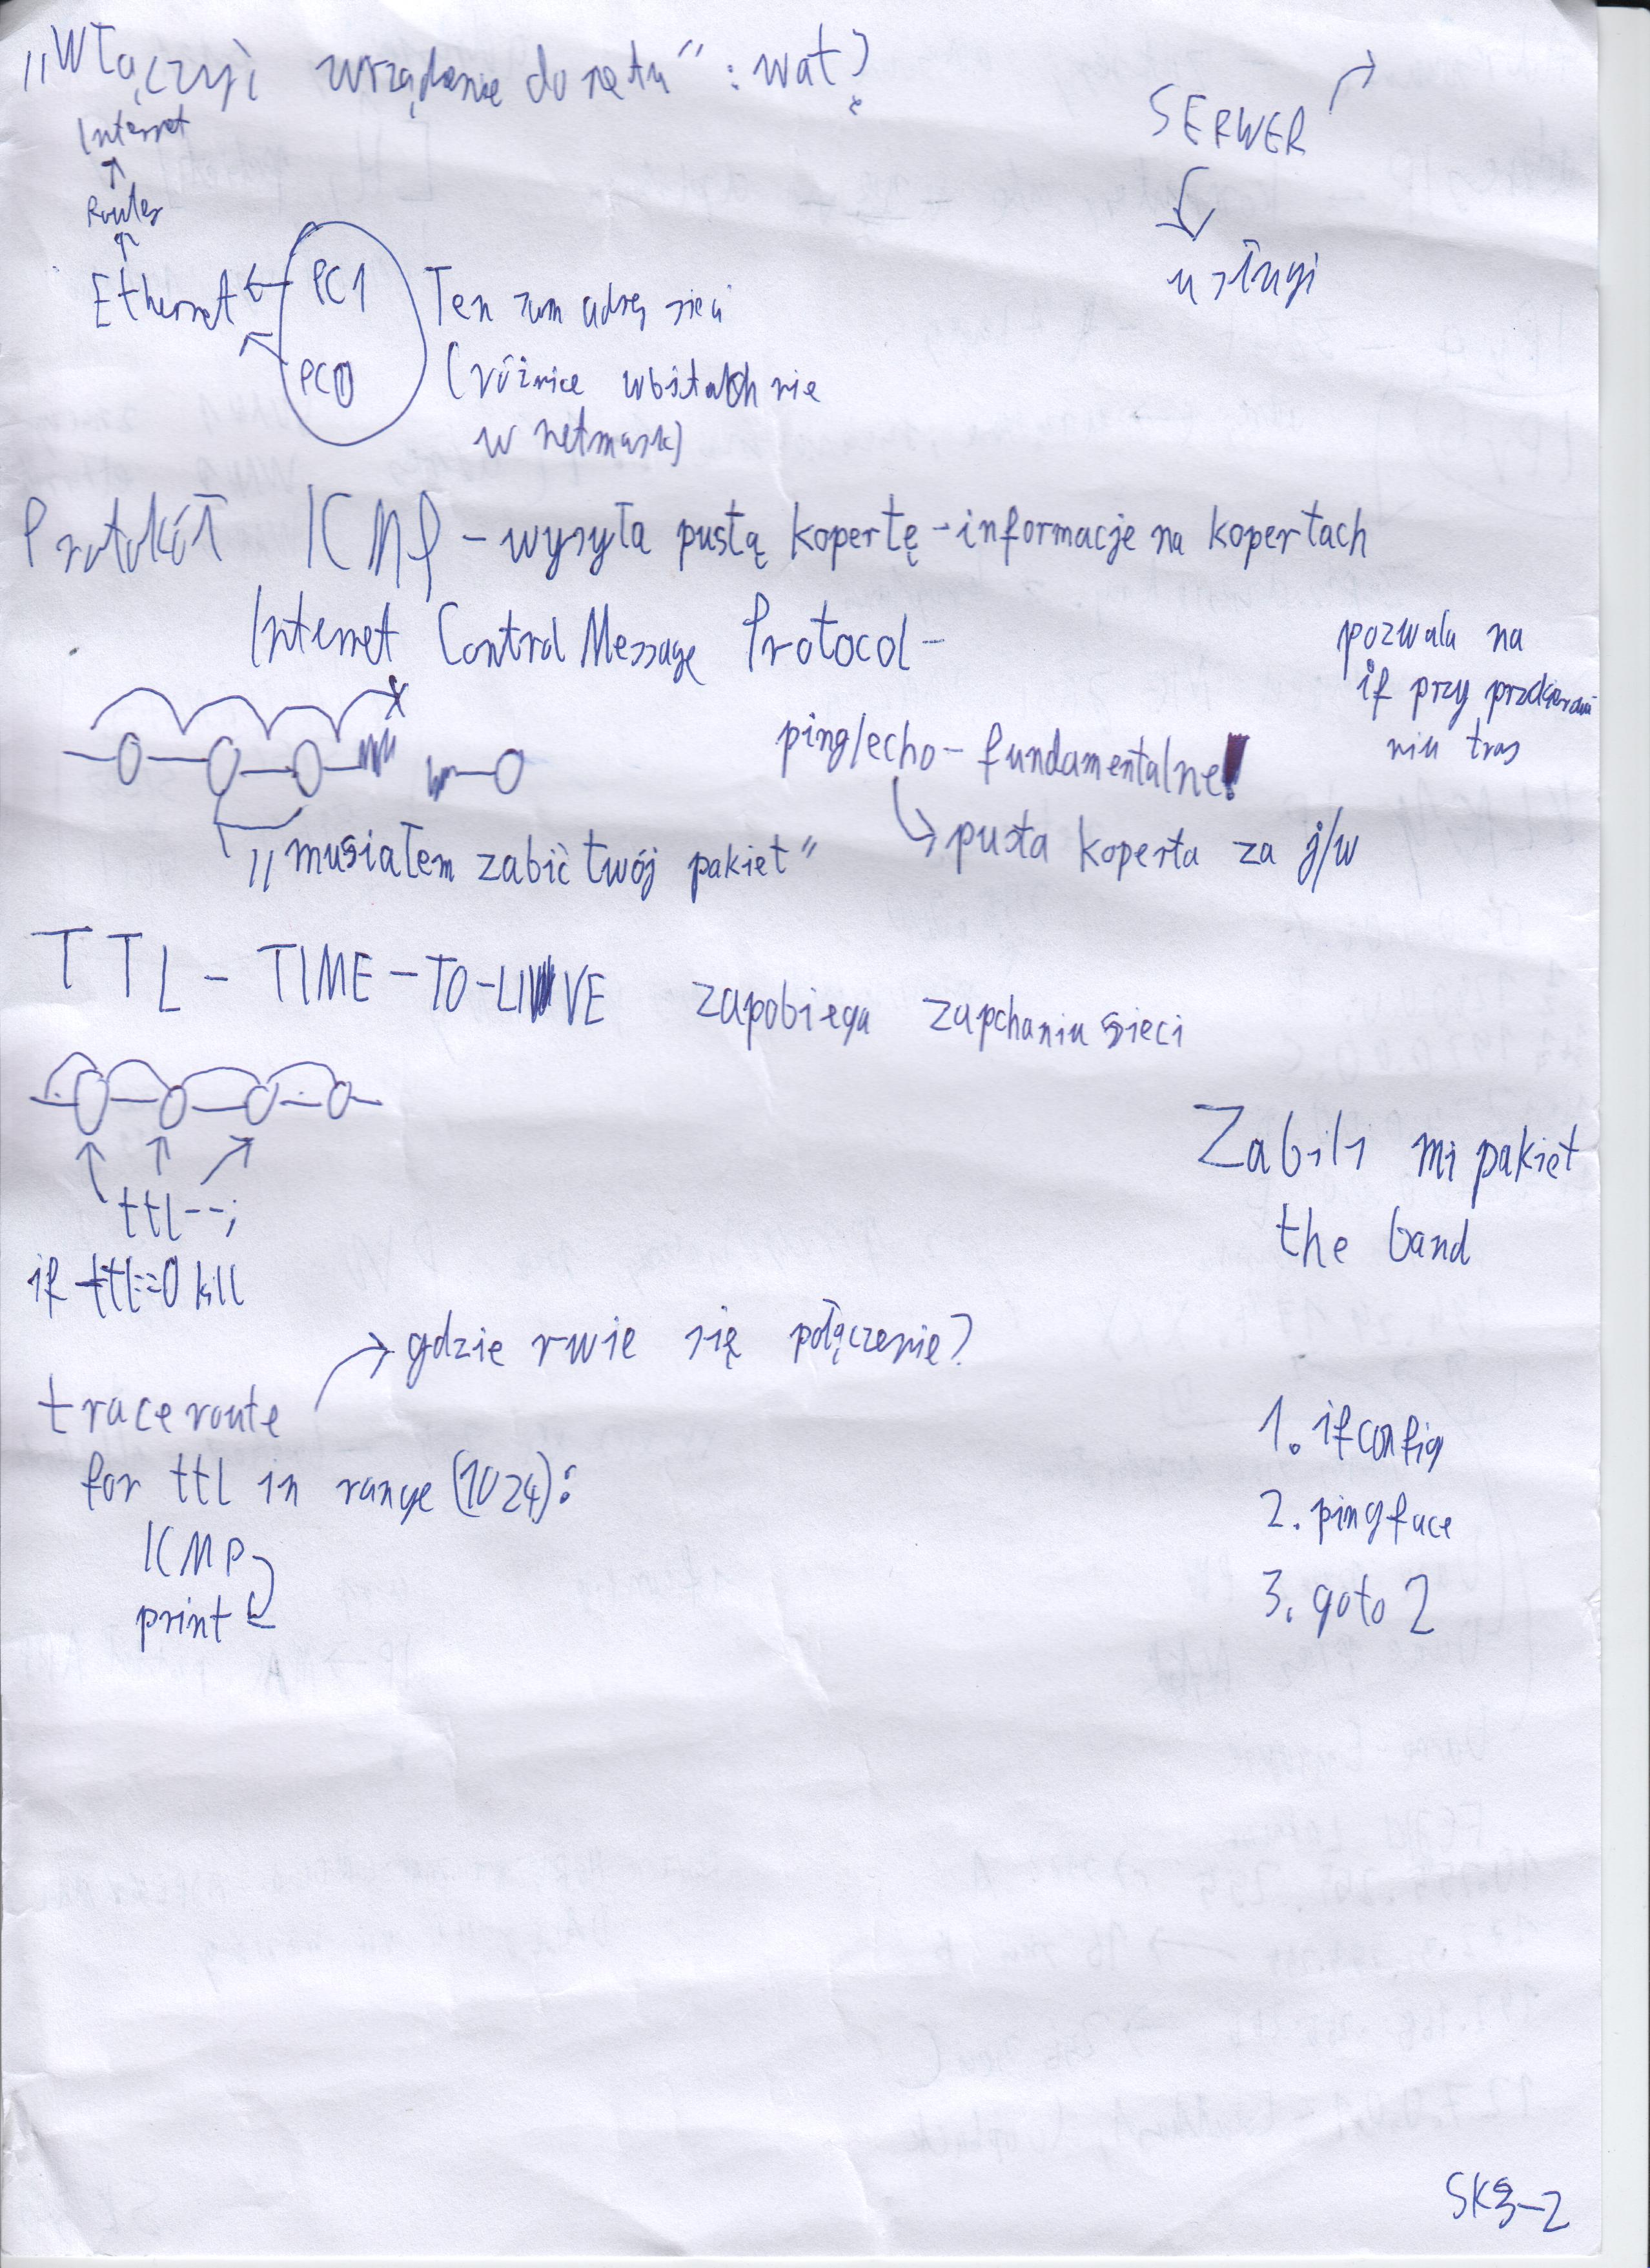 „Włączyć urządzenie do netu" : wat?
SERWER
usługi
Internet
Router
Ethernet
PC1
PC0
Ten sam adres sieci
(różnice w bitach nie
w netmask)
Protokół ICMP - wysyła pustą kopertę - informacje na kopertach
Internet Control Message Protocol -
pozwala na
if przy
niu tras
ping/echo - fundamentalne!
pusta koperta za j/w
„musiałem zabić twój pakiet"
TTL - TIME-TO-LIVE zapobiega zapchaniu sieci
ttl--;
if ttl==0 kill
Zabili mi pakiet
the band
gdzie rwie się połączenie?
traceroute
for ttl in range(1024):
ICMP
print
1. ifconfig
2. pingface
3. goto 2
SKS-2